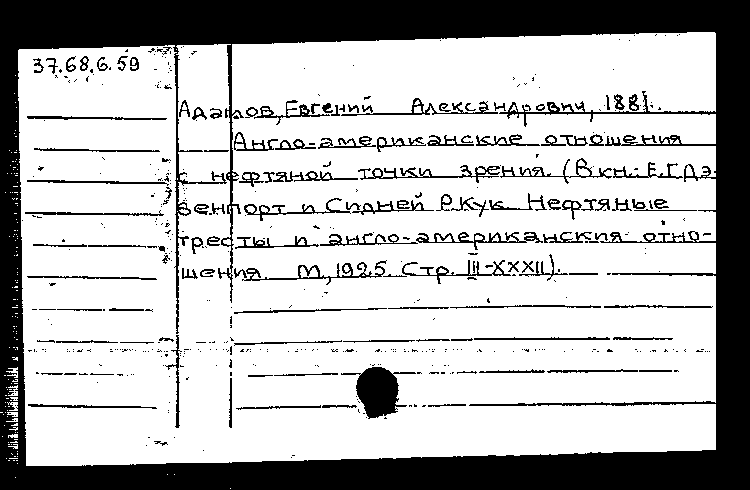 37.68.6.59
Адамов, Евгений Александрович, 1881.
Англо-американские отношения
с нефтяной точки зрения. (В кн.: Е.Г Дэ-
венпорт и Сидней Р. Кук. Нефтяные
тресты и англо-американския отно-
шения. М., 1925. Стр. III-XXXII).